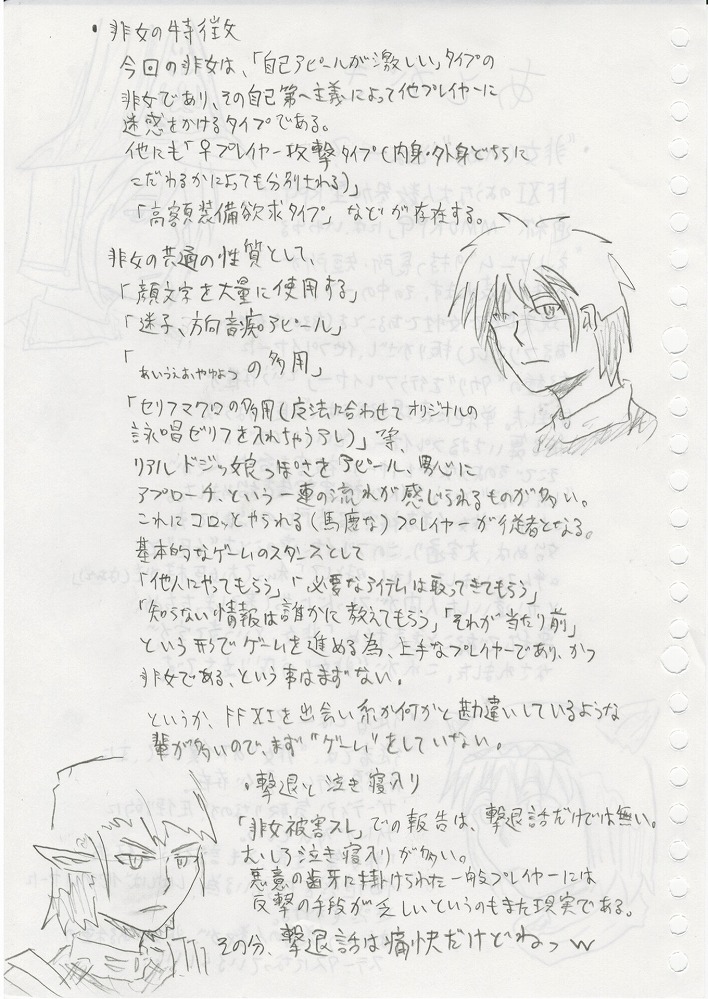 ・非女の特徴
今回の非女は、「自己アピールが激しい」タイプの
非女であり、その自己第一主義によって他プレイヤーに
迷惑をかけるタイプである。
他にも「♀プレイヤー攻撃タイプ(内身・外身どちらに
こだわるかによっても分別される)」
「高額装備欲求タイプ」などが存在する。
非女の共通の性質として、
「顔文字を大量に使用する」
「迷子、方向音痴アピール」
「ぁぃぅぇぉゃゅょっの多用」
「セリフマクロの多用(魔法に合わせてオリジナルの
詠唱ゼリフを入れちゃうアレ)」等、
リアルドジッ娘っぽさをアピール、男心に
アプローチ、という一連の流れが感じられるものが多い。
これにコロッとやられる(馬鹿な)プレイヤーが従者となる。
基本的なゲームのスタンスとして
「他人にやってもらう」「必要なアイテムは取ってきてもらう」
「知らない情報は誰かに教えてもらう」「それが当たり前」
という形でゲームを進める為、上手なプレイヤーであり、かつ
非女である、という事はまずない。
というか、FFXIを出会い系か何かと勘違いしているような
輩が多いので、まず“ゲーム”をしていない。
・撃退と泣き寝入り
「非女被害スレ」での報告は、撃退話だけでは無い。
むしろ泣き寝入りが多い。
悪意の歯牙に掛けられた一般プレイヤーには
反撃の手段が乏しいというのもまた現実である。
その分、撃退話は痛快だけどねっw